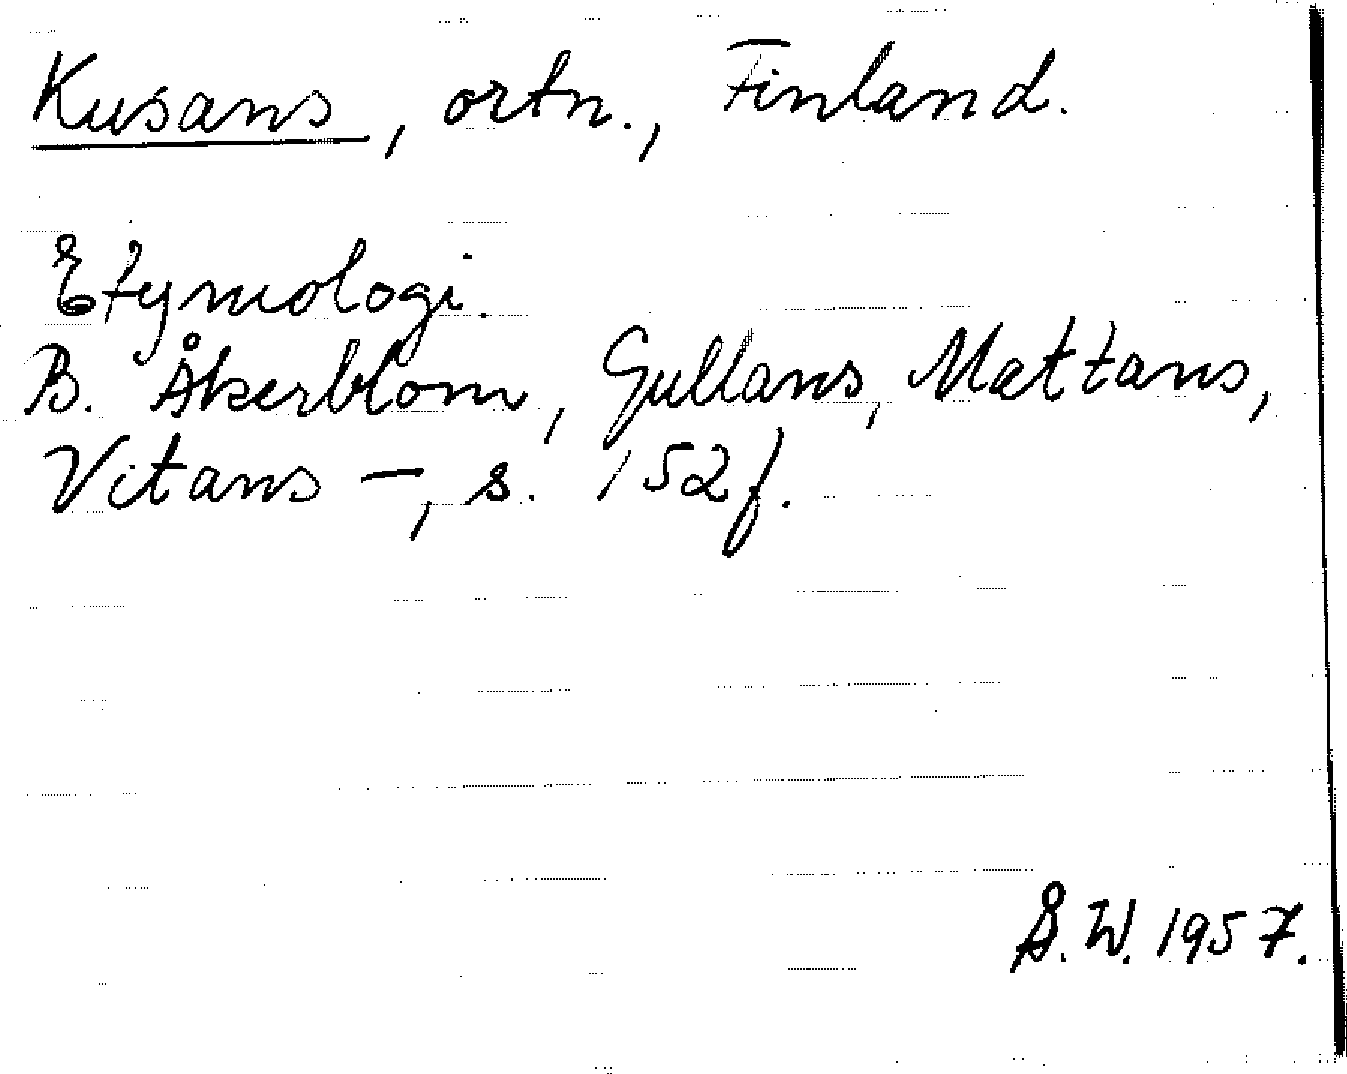 Kusans, ortn., Finland.
Etymologi.
B. Åkerblom, Gullans, Mattans,
Vitans –, s. 152f.
Å.W. 1957.